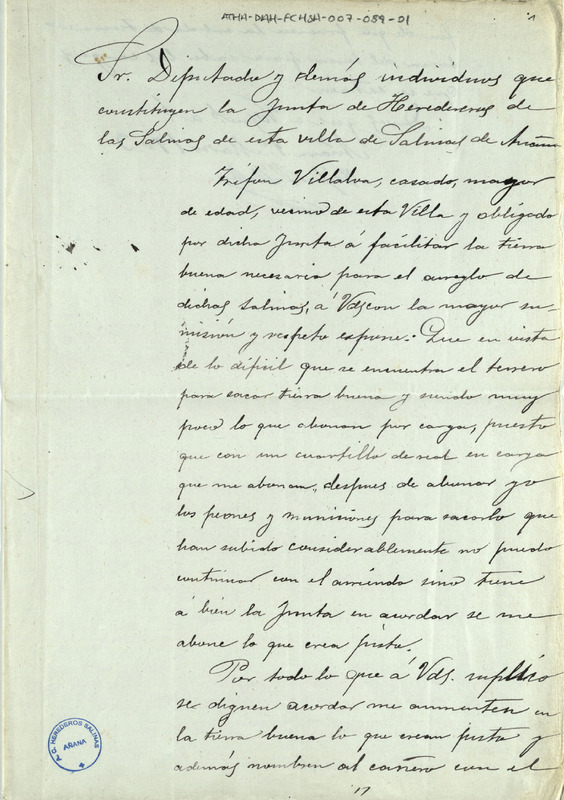 ATHA-DAH-FCHSA-007-089-01
Sr. Diputado y demás individuos que
constituyen la Junta de Herederos de
las Salinas de esta villa de Salinas de Añana
Trifon Villalva, casado, mayor
de edad, vecino de esta Villa y obligado
por dicha Junta á facilitar la tierra
buena necesaria para el arreglo de
dichas salinas, á Vds con la mayor su-
misión y respeto expone: Que en vista
de lo difisil que se encuentra el terreno
para sacar tierra buena y siendo muy
poco lo que abonan por carga, puesto
que con un cuartillo de real en carga
que me abonan, despues de abonar yo
los peones y municiones para sacarlo que
han subido considerablemente no puedo
continuar con el arriendo sino tiene
á bien la Junta en acordar se me
abone lo que crea justo.
Por todo lo que á Vds. suplico
se dignen acordar me aumenten en
la tierra buena lo que crean justo y
además nombren al cañero con el
G. HEREDEROS SALINAS
AÑANA